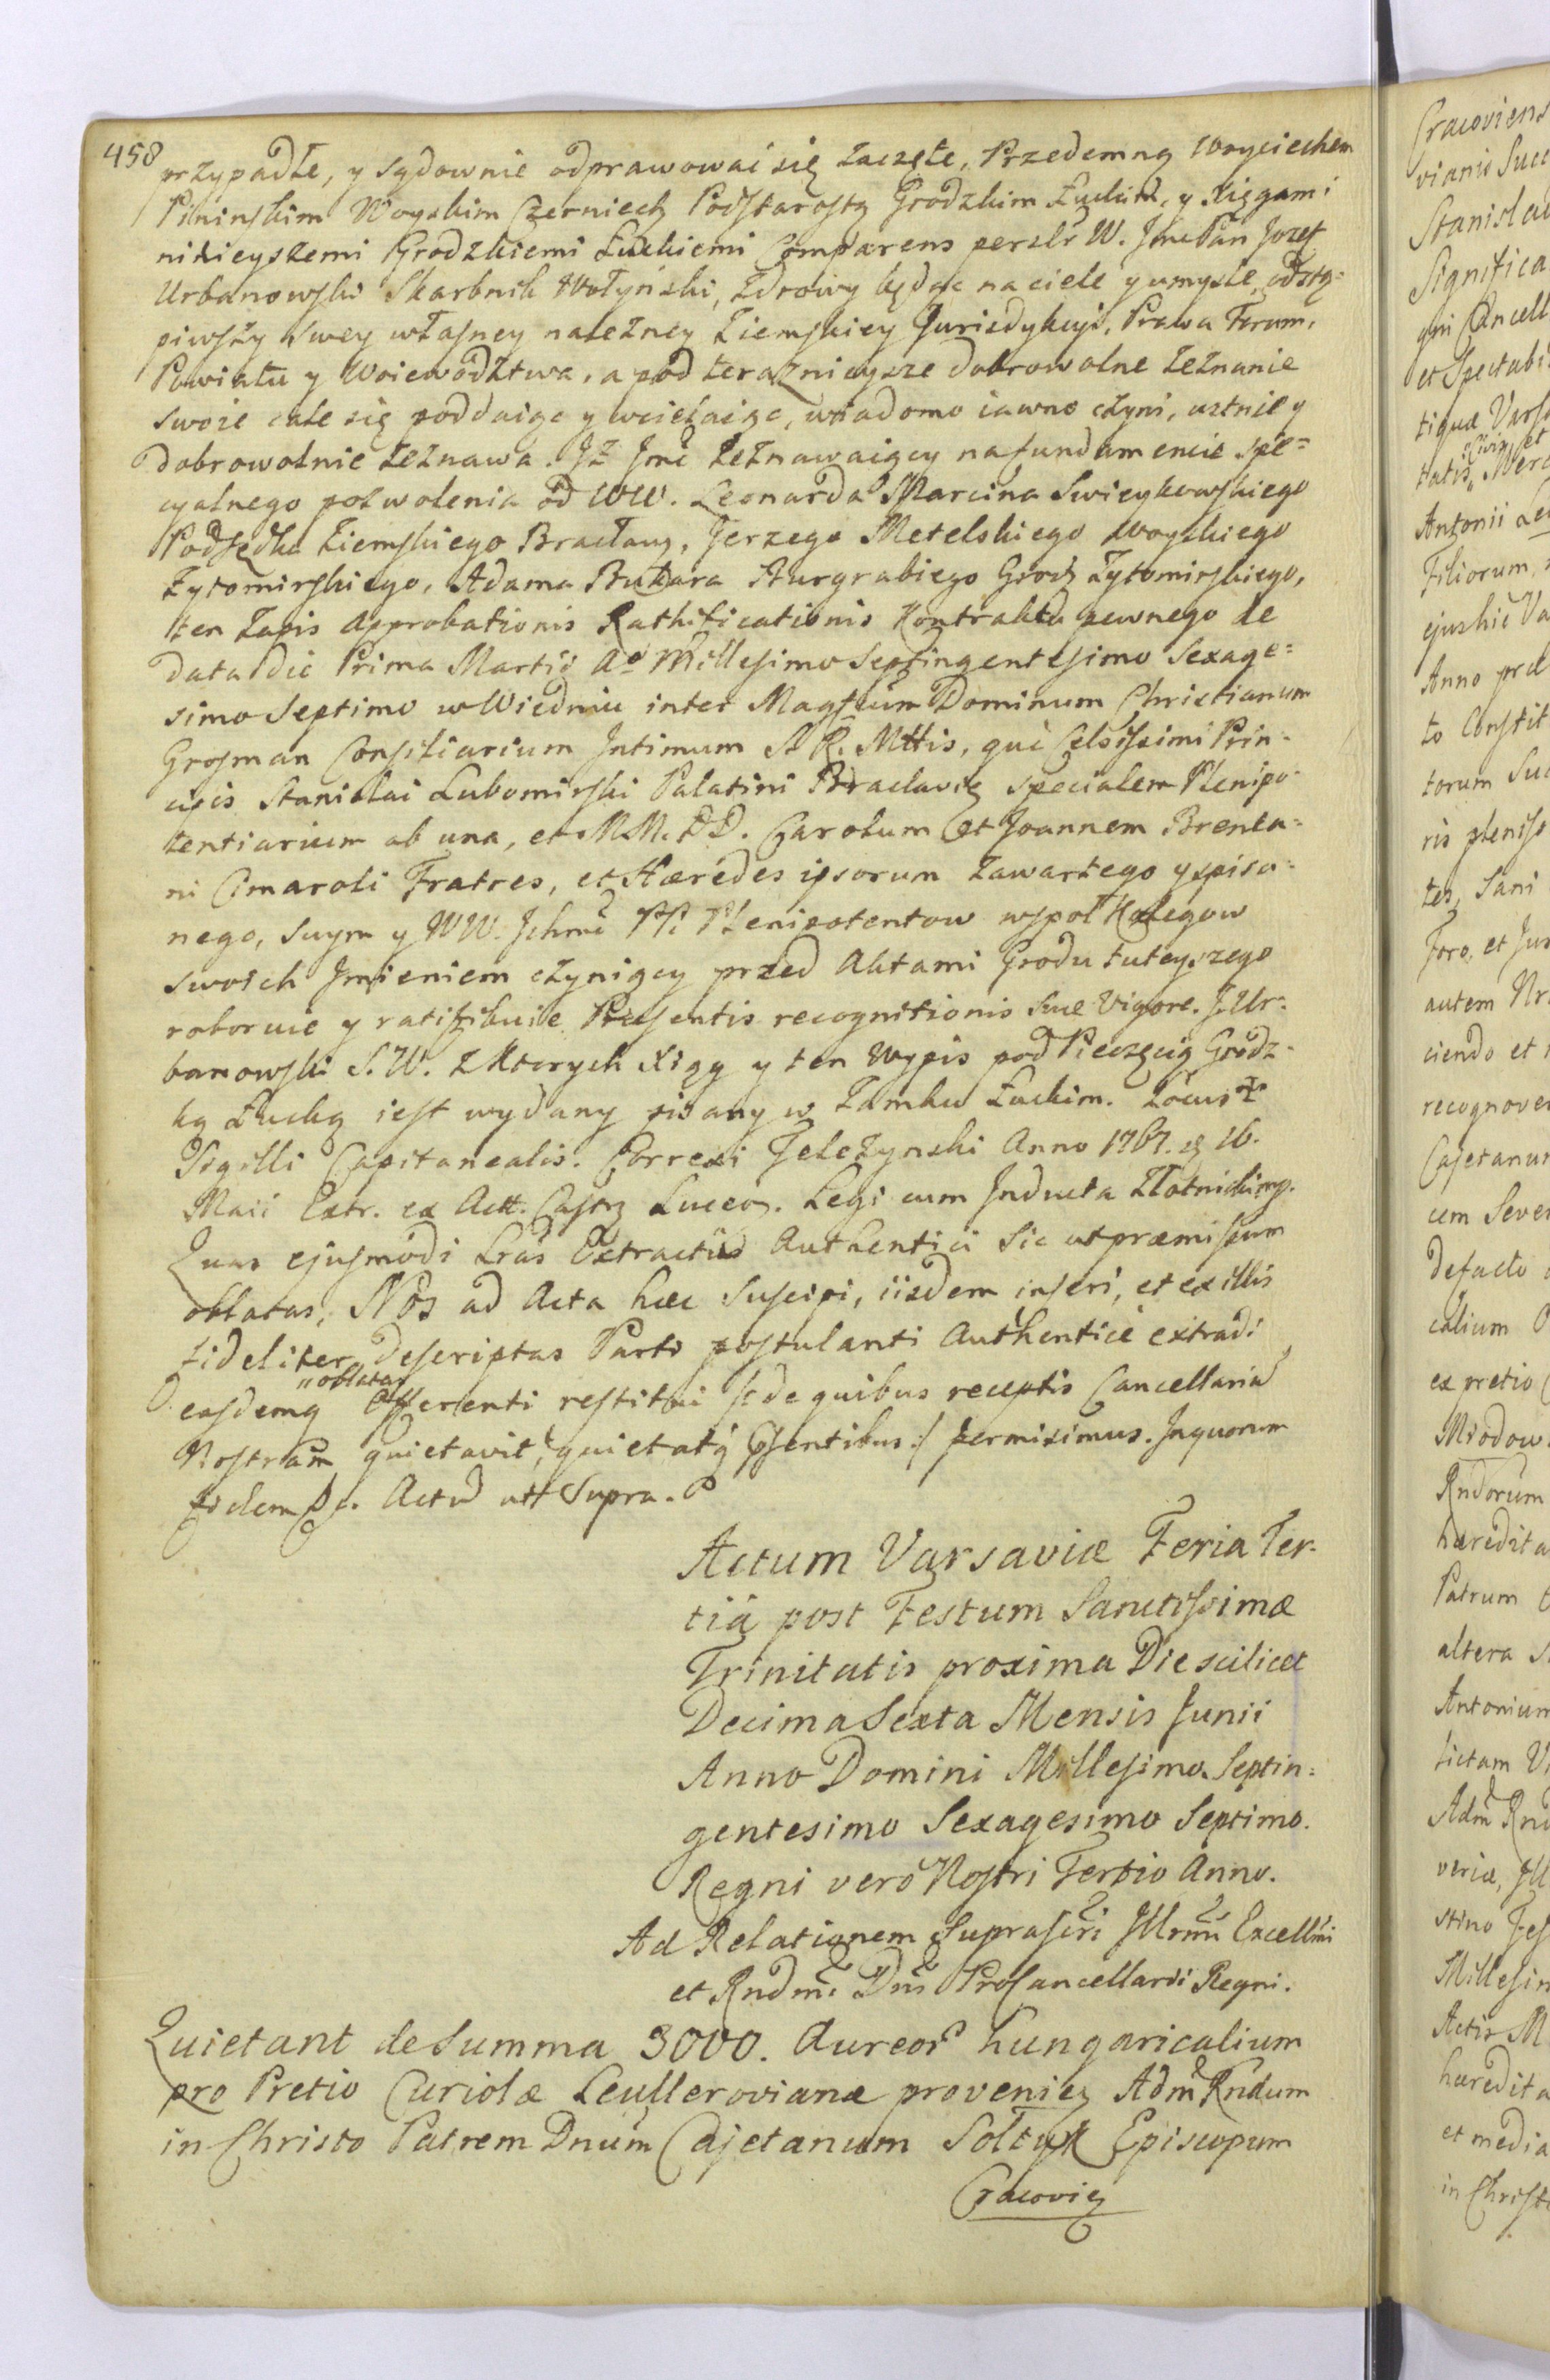 458
przypadłe, y sądownie odprawować się zaczęte, Przedemną Woyciechem
Pinińskim Woyskim Czerniech Podstarostą Grodzkim Łuckim, y Xięgami
ninieyszemi Grodzkiemi Łuckiemi Comparens persłr W. Jmc Pan Jozef
Urbanowski Skarbnik Wołyński, zdrowy będąc na ciele y umyśle, odstą=
piwszy swey własney należney Ziemskiey Jurisdykcyi, Prawa Forum,
Powiatu y Woiewodztwa, a pod teraznieysze dobrowolne zeznanie
swoie całe się poddaiąc y wcielaiąc, wiadomo iawno czyni, ustnie y
dobrowolnie zeznawa. Jż Jmć zeznawaiący na fundamencie spe=
cyalnego pozwolenia od WW. Leonarda Marcina Swieykowskiego
Podsędka Ziemskiego Bracławs, Jerzego Metelskiego Woyskiego
Żytomirskiego, Adama Bukara Burgrabiego Grodz Żytomirskiego,
ten zapis Approbationis Rathificationis Kontraktu pewnego de
data die Prima Martii Aō Millesimo Septingentesimo Sexage=
simo Septimo w Wiedniu inter Magfcum Dominum Christianum
Grosman Consiliarium Intimum S. R. Mttis, qui Celsissimi Prin-
cipis Stanislai Lubomirski Palatini Braclavię specialem Plenipo-
tentiarium ab una, et MM. DD. Carolum et Joannem Brenta=
ni Cimaroli Fratres, et Hæredes ipsorum zawartego y spisa-
nego, suym y WW. Jchmć PP. Plenipotentow wspoł Kolegow
swoich Jmieniem czyniący przed Aktami Grodu tuteyszego
roboruie y ratifikuie Præsentis recognitionis suæ Vigore. J. Ur=
banowski S. W. z Ktorych Xiąg y ten Wypis pod Pieczęcią Grodz-
ką Łucką iest wydany pisany w Zamku Łuckim. Locus
Sigilli Capitanealis. Correxi Jełeżynski Anno 1767. 16.
Maii Extr. ex Actt. Castr Luceor. Legi cum Inducta Złotnicki mp.
Quas ejusmodi Lras Extractus Authentici Sic ut præmissum
oblatas, Nos ad Acta hæc Suscipi, iisdem inseri, et ex illis
fideliter descriptas Parti postulanti Authenticè extradi
"oblatas
easdemq Offerenti restitui /: de quibus receptis Cancellariam
Nostram quietavit, quietatq Psentibus:/ permisimus. In quorum
fidem Actū utt Supra.
Actum Varsaviæ Feria Ter-
tiâ post Festum Sanctissimæ
Trinitatis proxima Die scilicet
Decima Sexta Mensis Junii
Anno Domini Millesimo Septin=
gentesimo Sexagesimo Septimo.
Regni vero Nostri Tertio Anno.
Ad Relationem Suprascri Jllrmi Excellmi
et Rndmi Dni ProCancellarii Regni.
Quietant de Summa 3000. Aureor hungaricalium
pro Pretio Curiolæ Leulleroviana provenien Adm Rndum
in Christo Patrem Dnum Cajetanum Sołtyk Episcopum
Cracovię
Cracoviens
vianis Succ
Stanislai
Significa
gni Cancell
et Spectabi
tiquæ Varsa
"Civiu et
tatis, Merc
Antonii Leu
Filiorum,
ejushic Va
Anno præd
to Constit
torum Suc
ris plenissi
tes, Sani
Foro, et Jur
autem Nr
ciendo et
recognover
Cajetanum
cem Sever
defacto
calium
ex pretio
Miodow
Rndorum
hæredita
Patrum
altera
Antonium
lictam
Adm Rnd
veriæ, Jll
stino Fes
Millesim
Actis M
hæredita
et media
in Christ